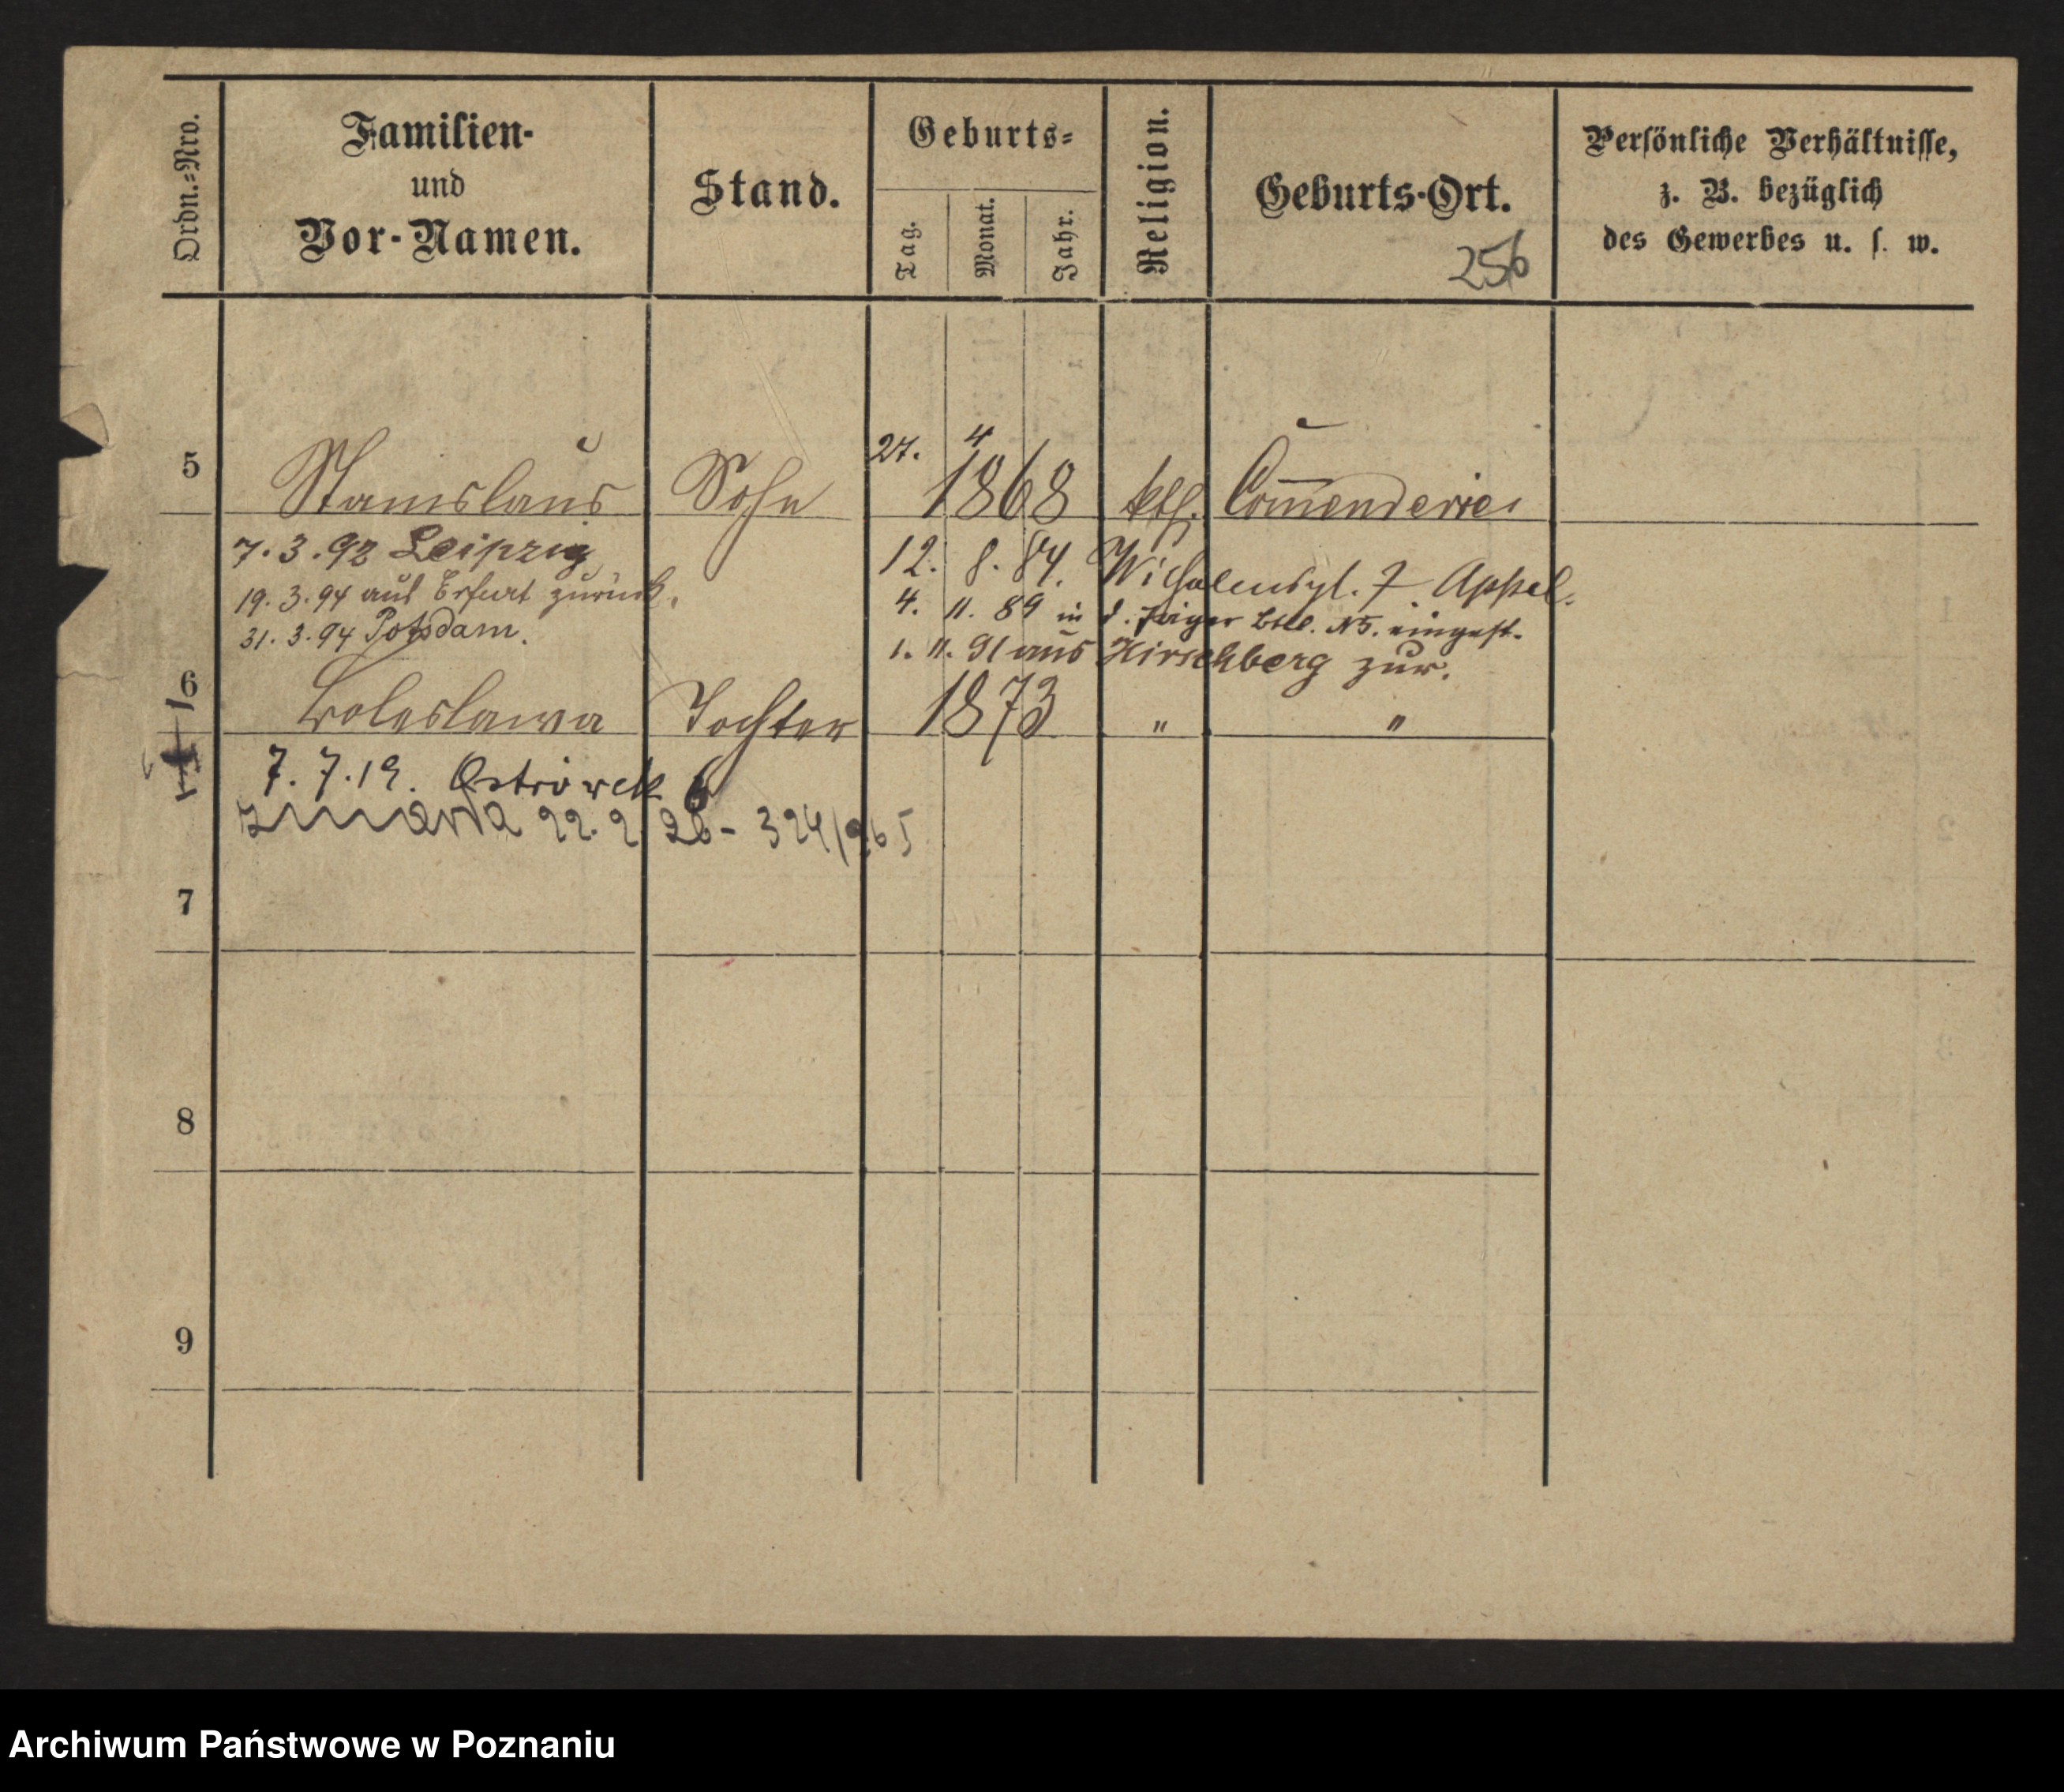 Ordn.=Nro.
Familien-
und
Vor-Namen.
Stand.
Geburts=
Tag.
Monat.
Jahr.
Religion.
Geburts-Ort.
256
Persönliche Verhältnisse,
z. B. bezüglich
des Gewerbes u. s. w.
5 Stanislaus Sohn 27. 4 1868 kth. Com̅enderie
7.3.92 Leipzig
12. 8. 84. 7 Appel.
19.3.94 aus Erfurt zurück.
4. 11. 89 in d. Jäger Btl. N5. eingest.
31.3.94 Potsdam.
1. 11. 91 aus Hirschberg zur.
6 Boleslawa Tochter 1873 " "
7.7.19. Ostrówek 6
zmarła 22.2.26 - 324/265
7
8
9
Archiwum Państwowe w Poznaniu